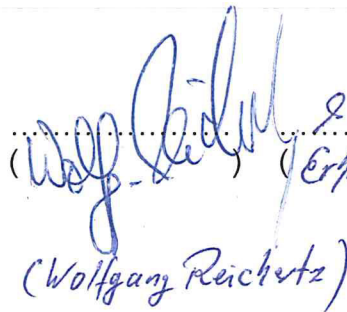 (Wolfg. Reichertz) (
(Wolfgang Reichertz)